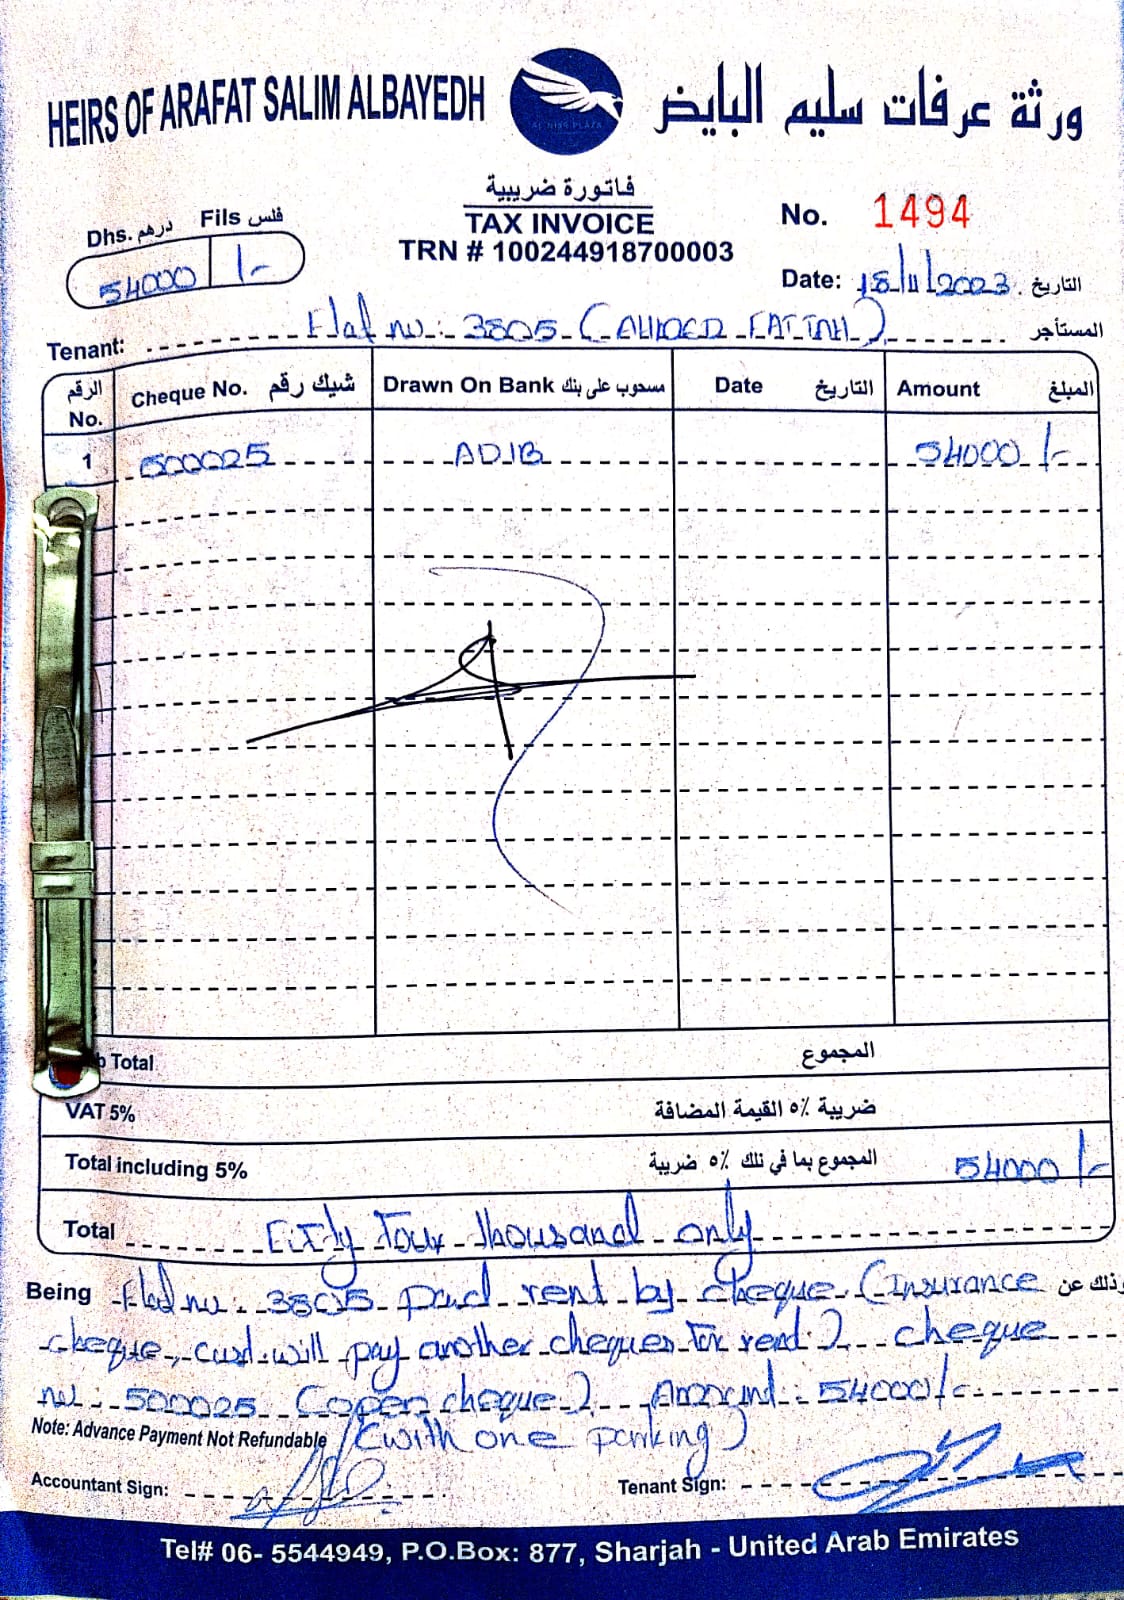 HEIRS OF ARAFAT SALIM ALBAYEDH
ورثة عرفات سليم البايض
AL NISR PLAZA
فاتورة ضريبية
TAX INVOICE
TRN # 100244918700003
No. 1494
Dhs. درهم Fils فلس
54000 /-
Date: 15/11/2023 التاريخ
Tenant: Flat no: 3805 (AHMED FATTAH) المستأجر
الرقم No. Cheque No. شيك رقم Drawn On Bank مسحوب على بنك Date التاريخ Amount المبلغ
1 500025 ADIB 54000/-
Total المجموع
VAT 5% ضريبة ٥٪ القيمة المضافة
Total including 5% المجموع بما في ذلك ٥٪ ضريبة 54000/-
Total Fifty four thousand only
Being Flat no: 3805 paid rent by cheque (Insurance وذلك عن
cheque, cust will pay another cheques for rent) cheque
no: 500025 (open cheque) Amount: 54000/-
Note: Advance Payment Not Refundable (with one parking)
Accountant Sign:
Tenant Sign:
Tel# 06- 5544949, P.O.Box: 877, Sharjah - United Arab Emirates